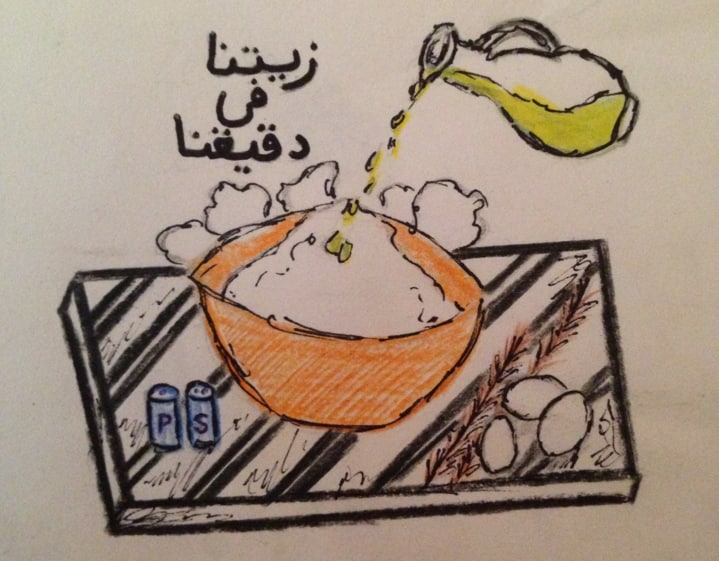 زيتنا
في
دقيقنا
P S